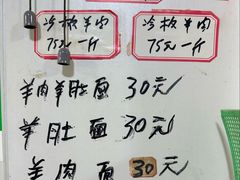 冷板羊肉
75元一斤
冷板羊肉
75元一斤
羊肉羊肚面 30元
羊肚面 30元
羊肉面 30元